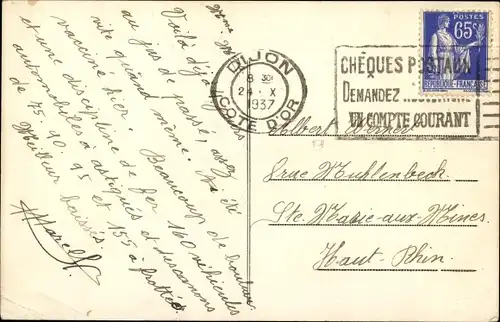 Voilà déjà
au jus de
vite quand même. été
vacciné hier. Beaucoup de boulot
et une discipline de fer 160 véhicules
automobiles à astiquer et des canons
de 75. 90. 95 et 155 à frotter
Meilleur baisers.
Marcel
DIJON
8 30
24 X
1937
COTE D'OR
CHÈQUES POSTAUX
DEMANDEZ
UN COMPTE COURANT
POSTES
65c
RÉPUBLIQUE FRANÇAISE
Albert
rue Muhlenbeck.
Ste. Marie-aux-Mines.
Haut-Rhin.